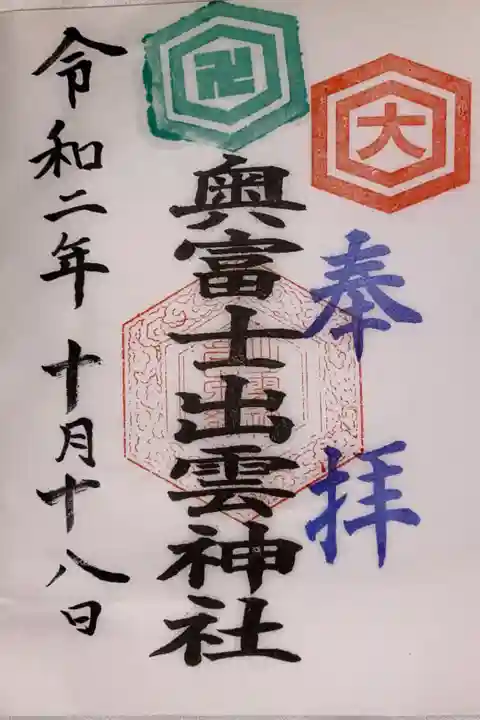 大
卍
奉拝
奥富士出雲神社
令和二年 十月十八日